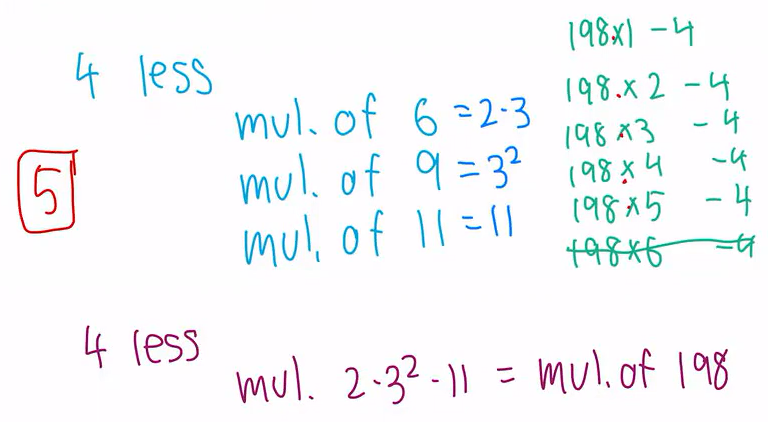 4 less
mul. of 6 = 2·3
mul. of 9 = 3²
mul. of 11 = 11
5
198×1 -4
198×2 -4
198×3 -4
198×4 -4
198×5 -4
198×6 -4
4 less
mul. 2·3²·11 = mul. of 198